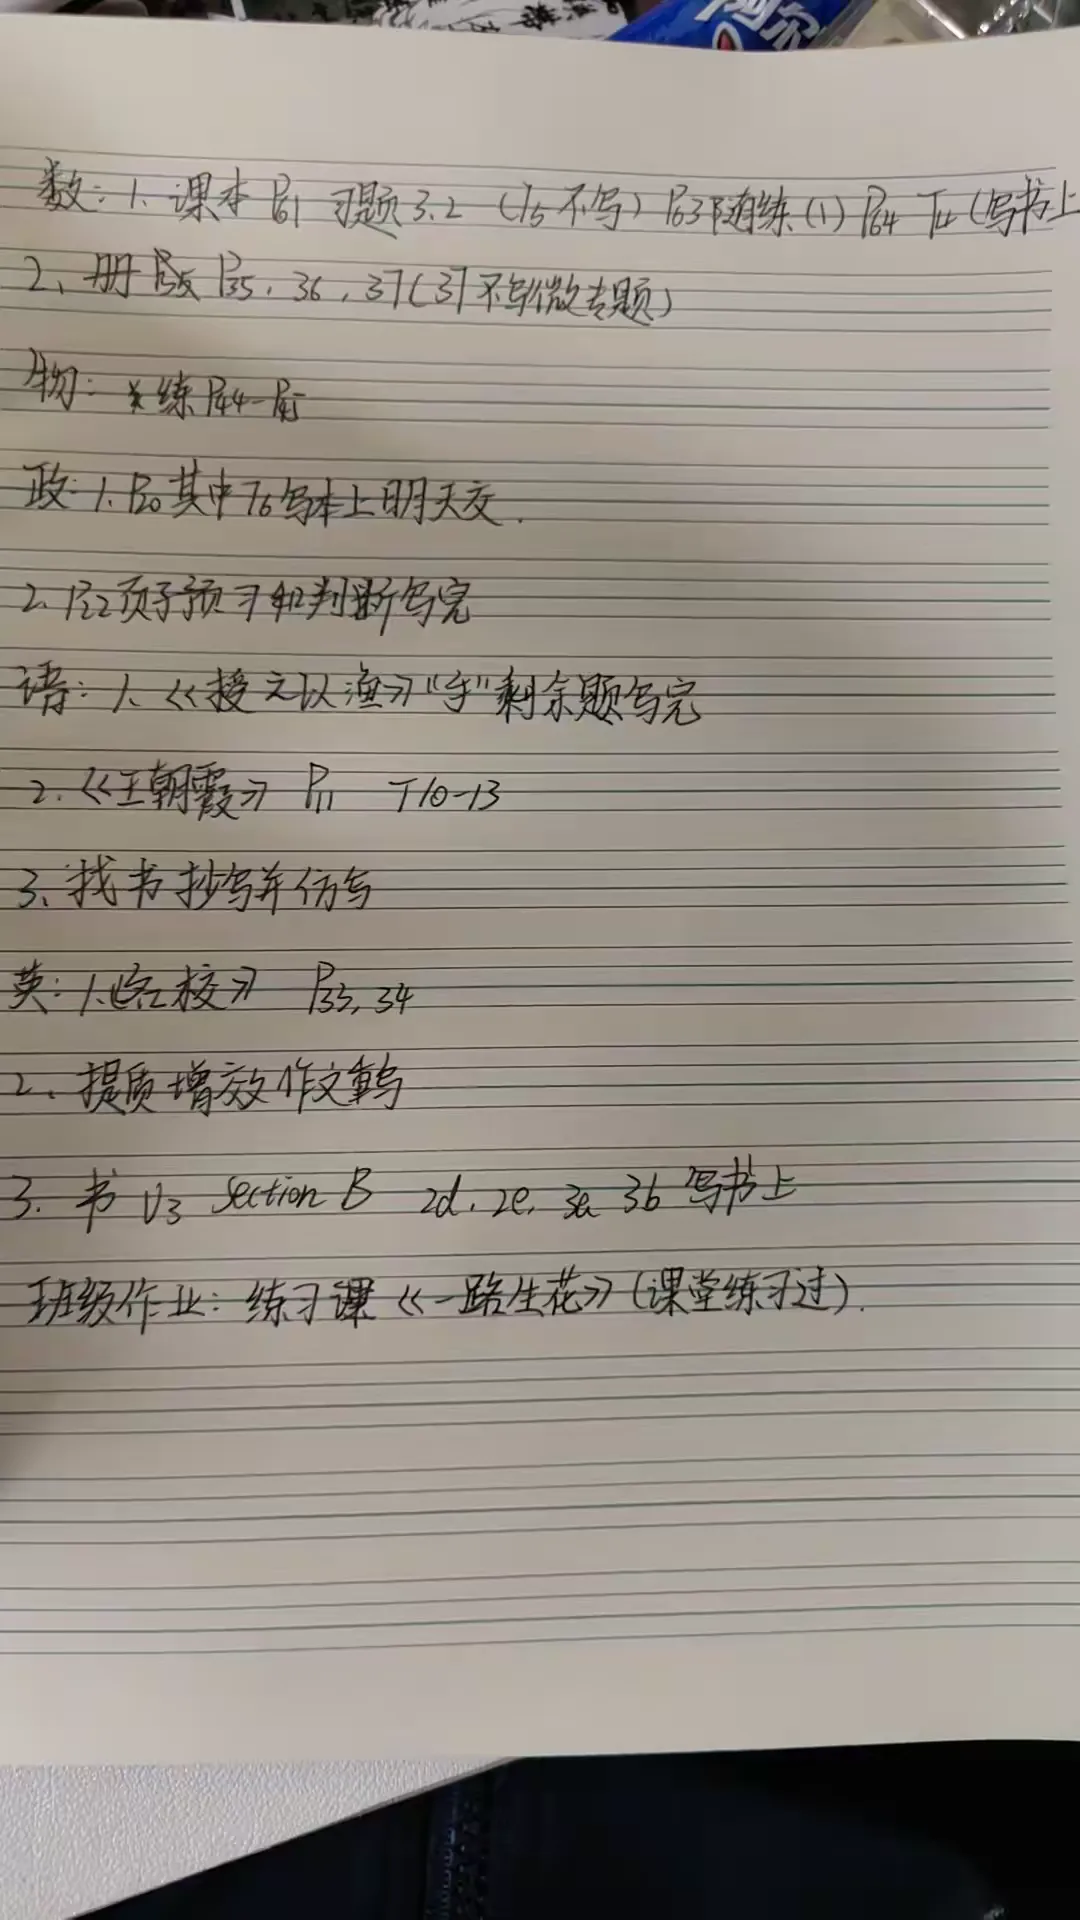 阿尔
数：1、课本 P61 习题3.2（T5不写）P63随练（1）P64 T4（写书上
2、册 P35，36，37（37不写微专题）
物：练P44-P45
政：1、P20其中T6写本上明天交．
2、P22页子预习和判断写完
语：1、《授之以渔》"字"剩余题写完
2．《王朝霞》 P11 T10-13
3、找书抄写并仿写
英：1、《名校》 P33，34
2、提质增效作文重写
3．书 U3 Section B 2d．2e．3a 3b 写书上
班级作业：练习课《一路生花》（课堂练习过）．